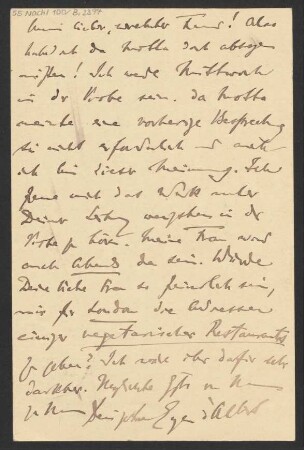 Mein lieber, verehrter Freund! Also
hast du da Motta doch absagen
müssen! Ich werde Mittwoch
in der Probe sein. da Motta
meinte eine vorherige Besprechung
sei nicht erforderlich und auch
ich bin dieser Meinung. Ich
freue mich das Werk unter
Deiner Leitung in der
Probe zu hören. Meine Frau wird
auch Abends da sein. Würde
Deine liebe Frau so freundlich sein,
mir für London die Adressen
einiger vegetarischer Restaurants
zu geben? Ich wäre ihr dafür sehr
dankbar. Herzlichste Grüße von Haus
zu Haus Dein Eugen d'Albert